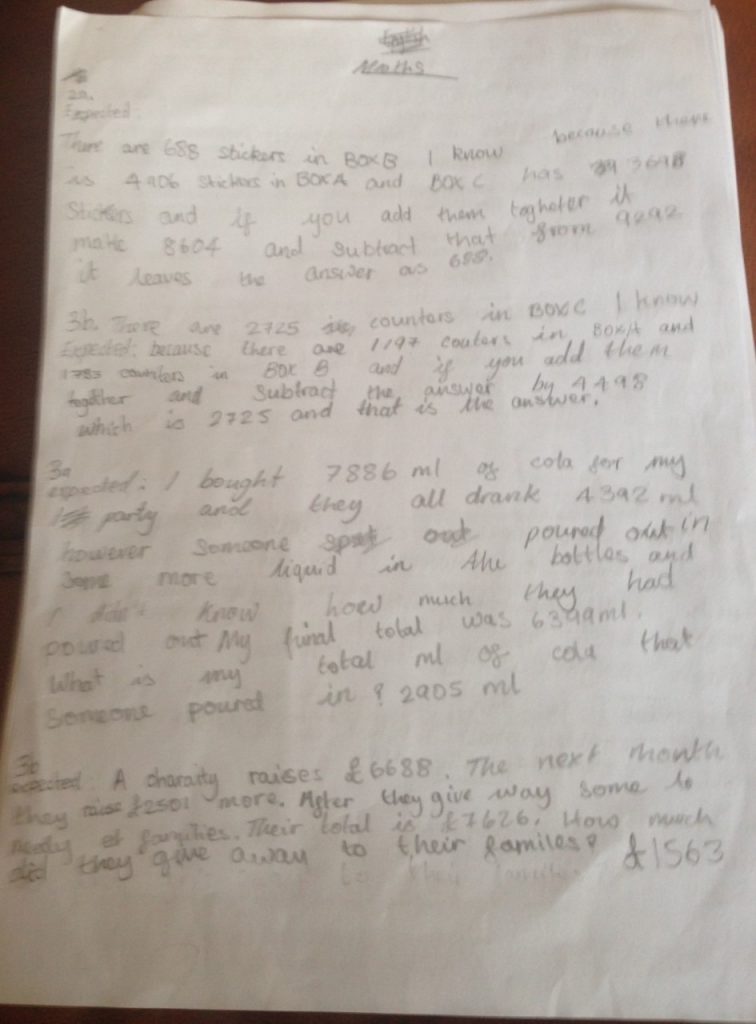 Maths
2a.
Expected:
There are 688 stickers in BOX B I know because there
is 4906 stickers in BOX A and BOX C has 3698
Stickers and if you add them togheter it
make 8604 and subtract that from 9292
it leaves the answer as 688.
3b. There are 2725 counters in BOX C I know
Expected: because there are 1197 couters in BOX A and
1783 counters in BOX B and if you add them
together and subtract the answer by 4498
which is 2725 and that is the answer.
3a
expected: I bought 7886 ml of cola for my
party and they all drank 4392 ml
however someone poured in
some more liquid in the bottles and
I didn't know how much they had
poured out My final total was 6399ml.
What is my total ml of cola that
Someone poured in? 2905 ml
3b
expected: A charaity raises £6688. The next month
they raise £2501 more. After they give way some to
needy families. Their total is £7626. How much
did they give away to their familes? £1563